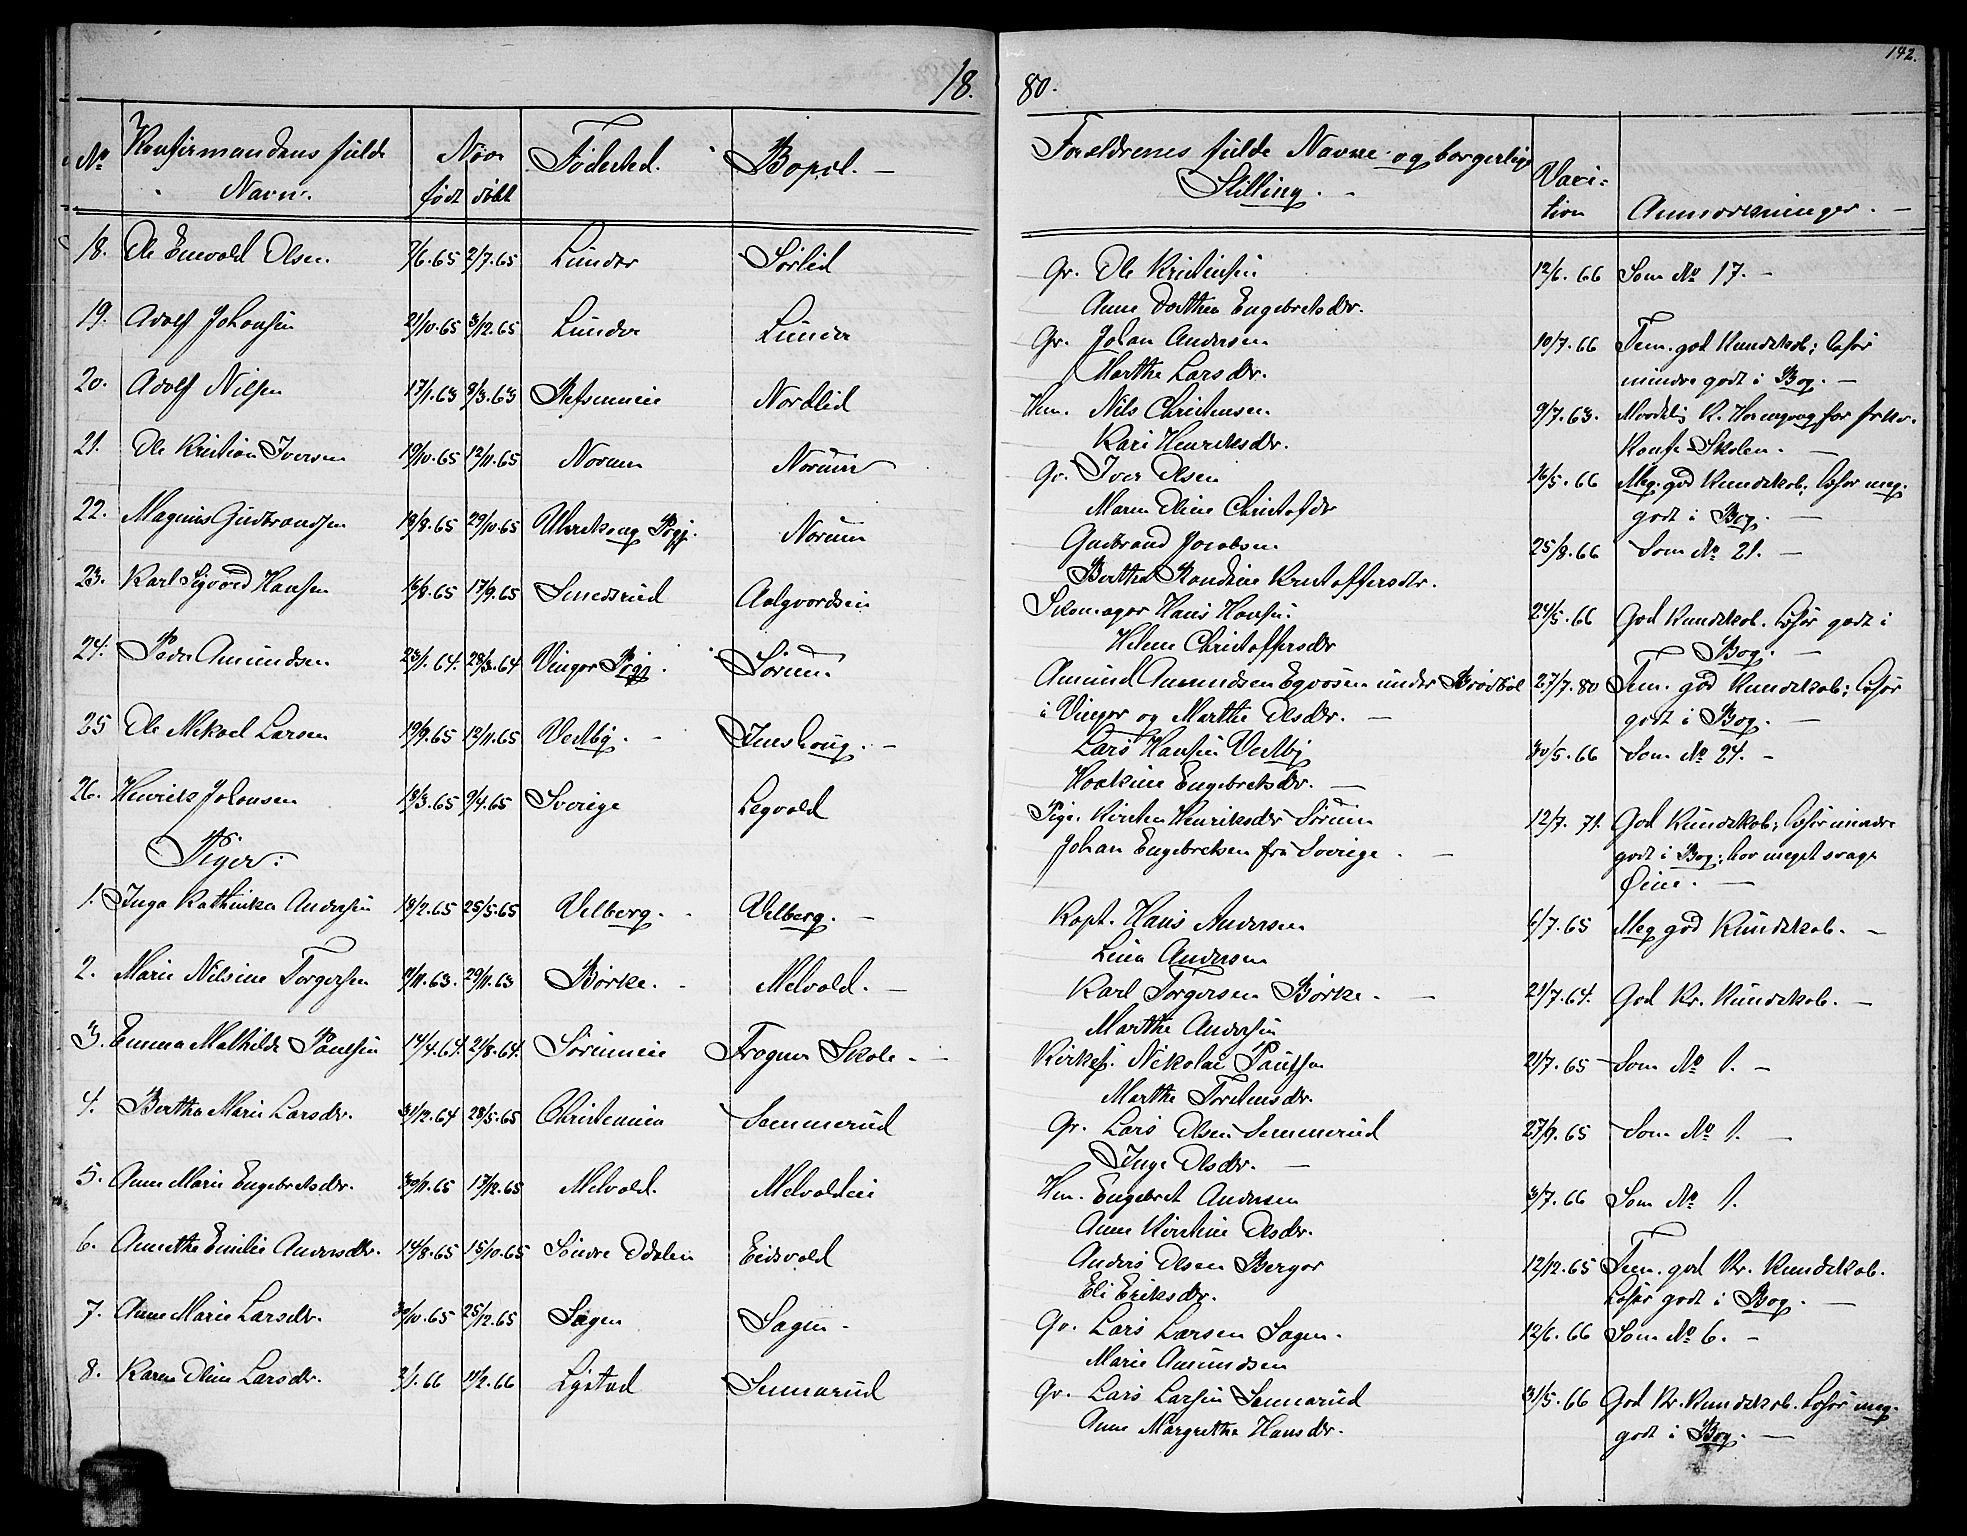 142.
18. 80.
No Konfirmandens fulde Navn. Naar født døbt Fødested. Bopæl. Forældrenes fulde Navne og borgerlige Stilling. Vaccination Anmærkninger.
18. Ole Enevold Olsen 7/6.65 2/7.65 Lunder Sørlid Gr. Ole Kristensen 12/6.66 Som No 17.
Anne Dorthea Engebretsdr.
19. Adolf Johansen 21/10.65 3/12.65 Lunder Lunder Gr. Johan Andersen 10/7.66 Tem. god Kundskab; læser
Marthe Larsdr. mindre godt i Bog.
20. Adolf Nilsen 17/1.63 9/3.63 Nordlid Hm. Nils Christensen 9/7.63.
Kari Henriksdr. Konf. Skolen.
21. Ole Kristian Iversen 19/10.65 12/11.65 Norum Norum Gr. Iver Olsen 16/5.66 Meg. god Kundskab; læser meg.
Maren Oline Christofdr godt i Bog.
22. Magnus Gudbrandsen 18/8.65 29/10.65 Ullensaker Pgj. Norum Gudbrand Jacobsen 25/8.66 Som No 21.
Berthea Randine Kristoffersdtr.
23. Karl Sigvard Hansen 16/8.65 17/9.65 Smedsrud Aalgaardseie Skomager Hans Hansen 24/5.66 God Kundskab. læser godt i
Helene Christoffersdr Bog.
24. Peder Amundsen 23/1.64. 28/3.64 Vinger Pgj. Sørum Amund Amundsen under 27/7.80 Tem. god Kundskab; læser
i Vinger og Marthe Olsdr. godt i Bog.
25 Ole Mikael Larsen 19/9.65 12/11.65 Vestby. Jenshaug. Lars Hansen Vestby 30/5.66 Som No 24.
Haakine Engebretsdr.
26. Henrik Johansen 18/3.65 9/4.65 Sverige Legvold Pige. Kirsten Henriksdr Sørum 12/7.71. God Kundskab; læser mindre
Johan Engebretsen fra Sverige. godt i Bog; har meget svage
Øine.
Piger:
1. Inga Kathinka Andersen 18/2.65 25/5.65 Velberg. Velberg. Kapt. Hans Andersen 6/7.65 Meg god Kundskab.
Lina Andersen
2. Marie Nilsine Torgersen 2/11.63. 29/11.63 Børke. Melvold. Karl Torgersen Børke. 21/7.64. God Kr. Kundskab.
Marthe Andersen
3. Emma Mathilde Paulsen 14/4.64. 21/8.64. Sørumeie Frogner Skole. Kirkes. Nikolai Paulsen 21/7.65 Som No 1.
Marthe Torstensdr.
4. Berthe Marie Larsdr. 31/12.64 28/5.65 Christiania Sommerud Gr. Lars Olsen Sommerud 27/9.65 Som No 1.
Inge Olsdr.
5. Anne Marie Engebretsdr. 30/11.65 17/12.65 Melvold. Melvoldeie Hm. Engebret Andersen 3/7.66 Som No 1.
Anne Kirstine Olsdr.
6. Annethe Emilie Andersdtr. 14/8.65 15/10.65 Søndre Odalen Eidsvold Anders Olsen Berger 12/12.65 Tem. god Kr. Kundskab.
Eli Eriksdr. Læser godt i Bog.
7. Anne Marie Larsdr. 30/10.65 25/12.65 Sagen Sagen Gr. Lars Larsen Sagen. 12/6.66 Som No 6.
Marie Amundsen
8. Karen Oline Larsdr. 2/1.66 11/2.66 Lystad Sommerud Gr. Lars Larsen Sommerud 31/5.66 God Kr. Kundskab. læser meg.
Anne Margrethe Hansdr. godt i Bog.